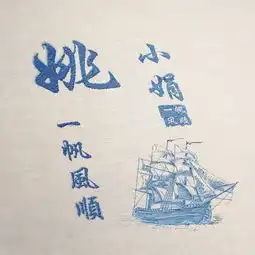 姚
小娟
一帆風順
一帆
風順